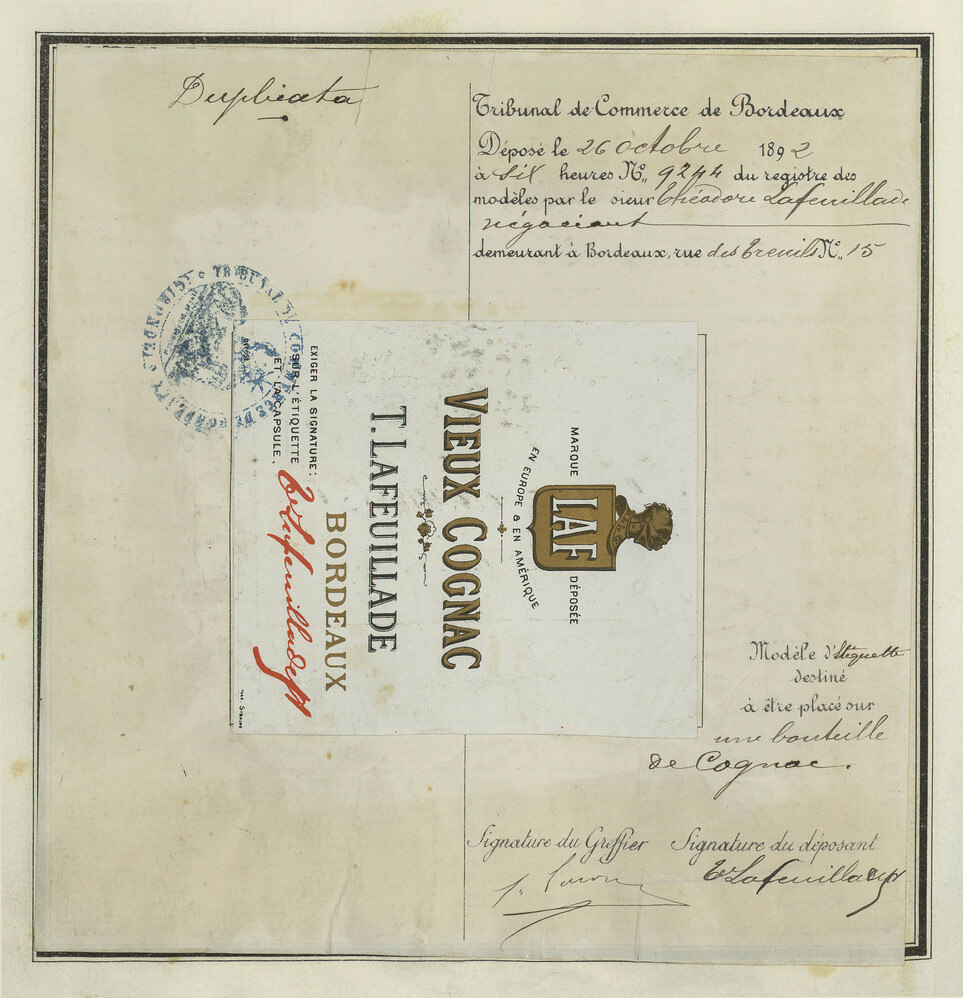 Duplicata
Tribunal de Commerce de Bordeaux
Déposé le 26 Octobre 1892
à six heures N° 9244 du registre des
modèles par le sieur Théodore Lafeuillade
négociant
demeurant à Bordeaux, rue des Treuils N° 15
TRIBUNAL DE COMMERCE DE
MARQUE LAF DÉPOSÉE
EN EUROPE & EN AMÉRIQUE
VIEUX COGNAC
T. LAFEUILLADE
BORDEAUX
EXIGER LA SIGNATURE:
SUR L'ÉTIQUETTE
ET LA CAPSULE.
T Lafeuillade
Modèle d'étiquette
destiné
à être placé sur
une bouteille
de Cognac.
Signature du Greffier Signature du déposant
T Lafeuillade